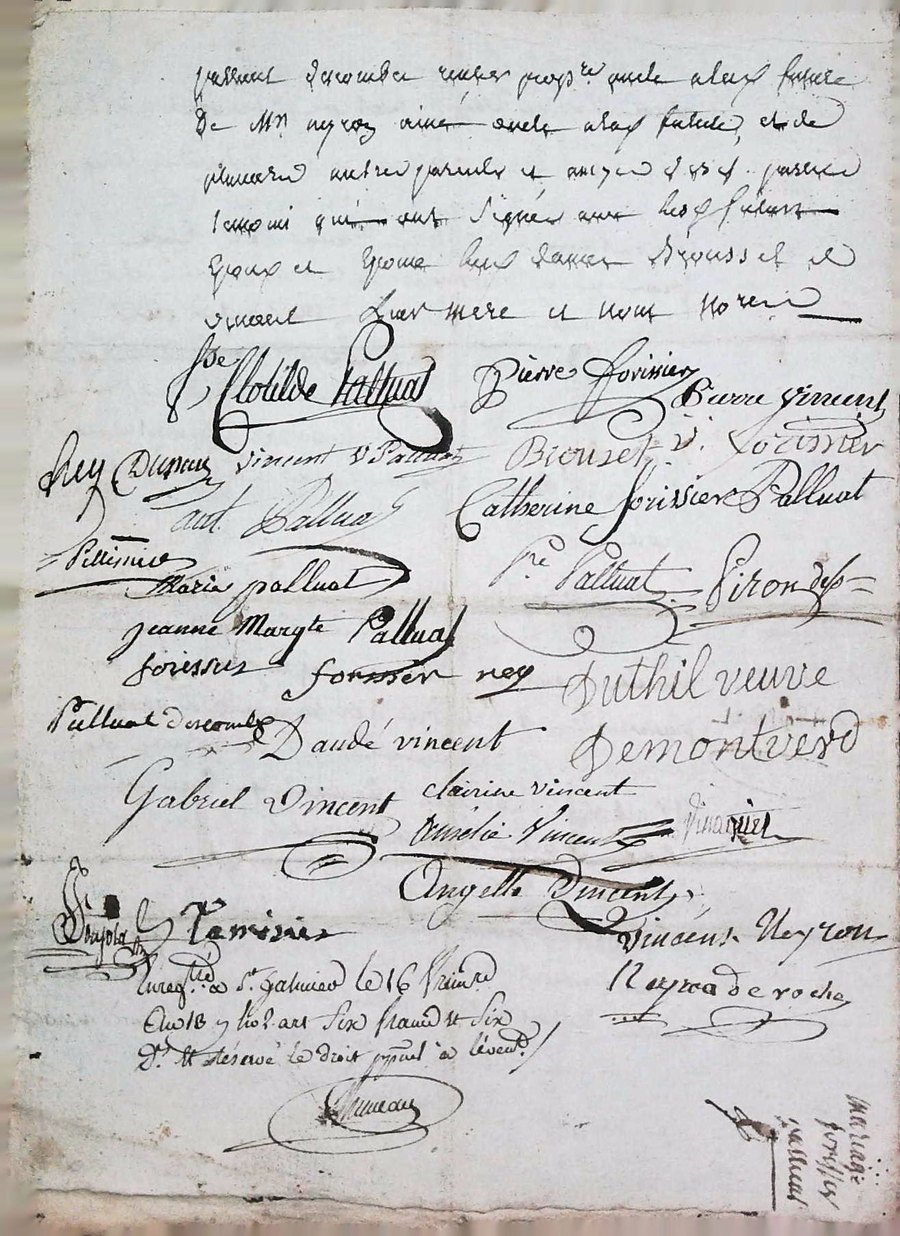 palluat descombe rentier propre oncle a lad future
De Mr neyron ainé oncle a lad future, et de
plusieurs autres parents et amys des d. parties
temoins qui ont signés avec lesd futurs
Epoux et Epouse les d dames Brousset et
vincent leur mere et nous No.re
Clotilde Palluat
Pierre forissier
Pierre Vincent
Rey Dupuy vincent v Palluat
Brouset v. forissier
ant Palluat
Catherine forissier Palluat
Marie palluat
Pre Palluat
Piron
jeanne Margte Palluat
forissier
forissier rey
Duthil veuve
Palluat descombe
Daudé vincent
Demontverd
Gabriel Vincent
clairine vincent
Aurélie Vincent
Angelle Vincent
Vincent Neyron
Neyron de roche
Enregtré a St. galmier le 16 frimre
an 13 f. art Six francs et Six
Dr. et réservé le droit ppnel a l'évent./
mariage
forissier
palluat